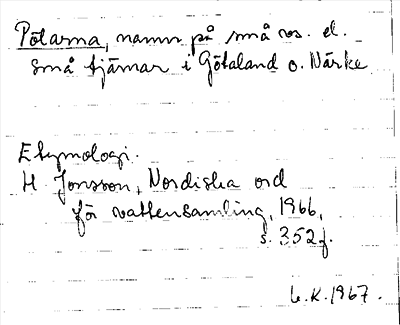 Pötarna, namn på små vs. el.
små tjärnar i Götaland o. Närke
Etymologi.
H. Jonsson, Nordiska ord
för vattensamling, 1966,
s. 352 f.
L.K. 1967.